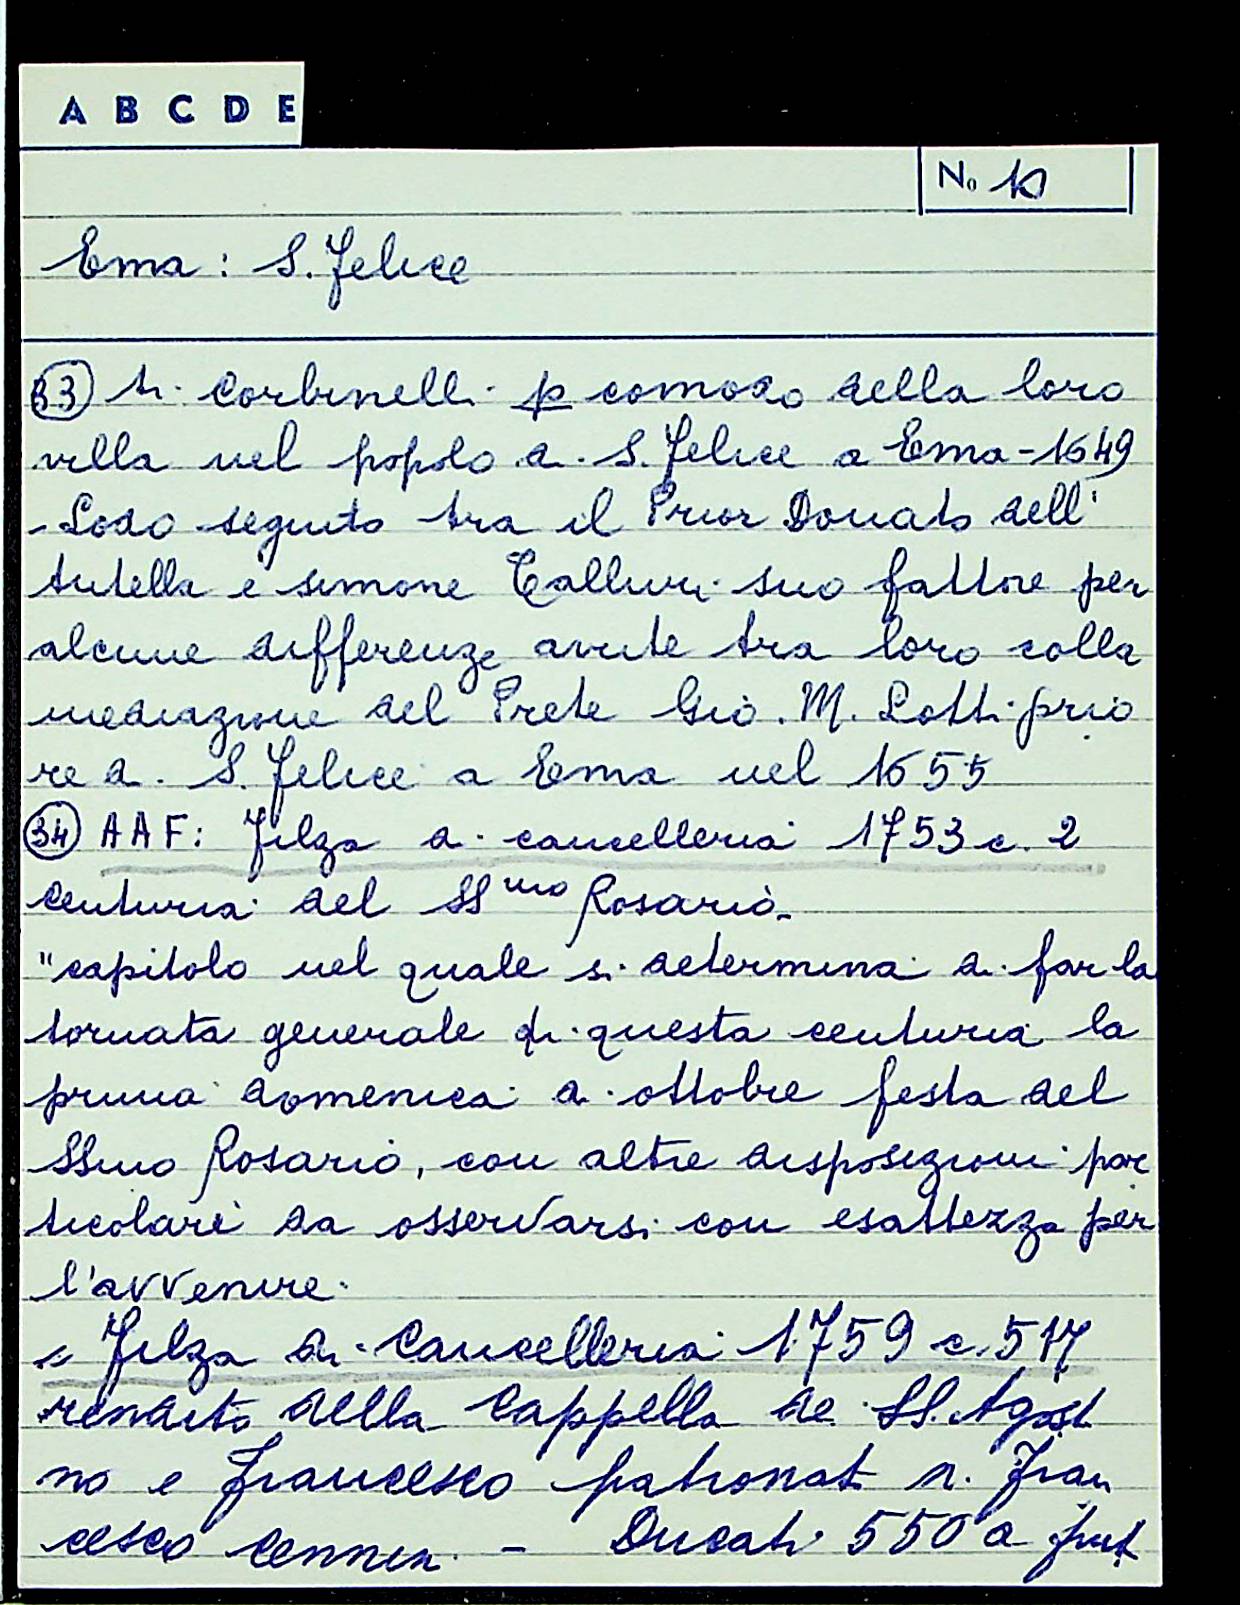 A B C D E
No 10
Ema: S. Felice
33) ti Corbinelli p comodo della loro
villa nel popolo di S. Felice a Ema - 1649
- Lodo seguito tra il Prior Donato dell'
Antella e Simone Tallini suo fattore per
alcune differenze avute tra loro colla
mediazione del Prete Gio. M. Lotti prio
re di S. Felice a Ema nel 1655
34) AAF: Filza di cancelleria 1753 c. 2
centuria del SSmo Rosario.
"capitolo nel quale si determina di far la
tornata generale di questa centuria la
prima domenica di ottobre festa del
SSmo Rosario, con altre disposizioni par
ticolari da osservarsi con esattezza per
l'avvenire.
" Filza di Cancelleria 1759 c. 517
rendito della Cappella de SS. Agosti
no e Francesco patronat. Fran
cesco Cennini - Ducati 550 a frut